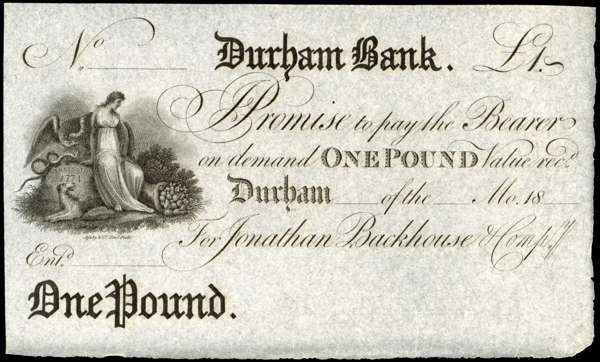 No Durham Bank. £1.-
I Promise to pay the Bearer
on demand ONE POUND Value recd.
Durham of the Mo. 18
For Jonathan Backhouse & Compy.
1774
Entd.
One Pound.